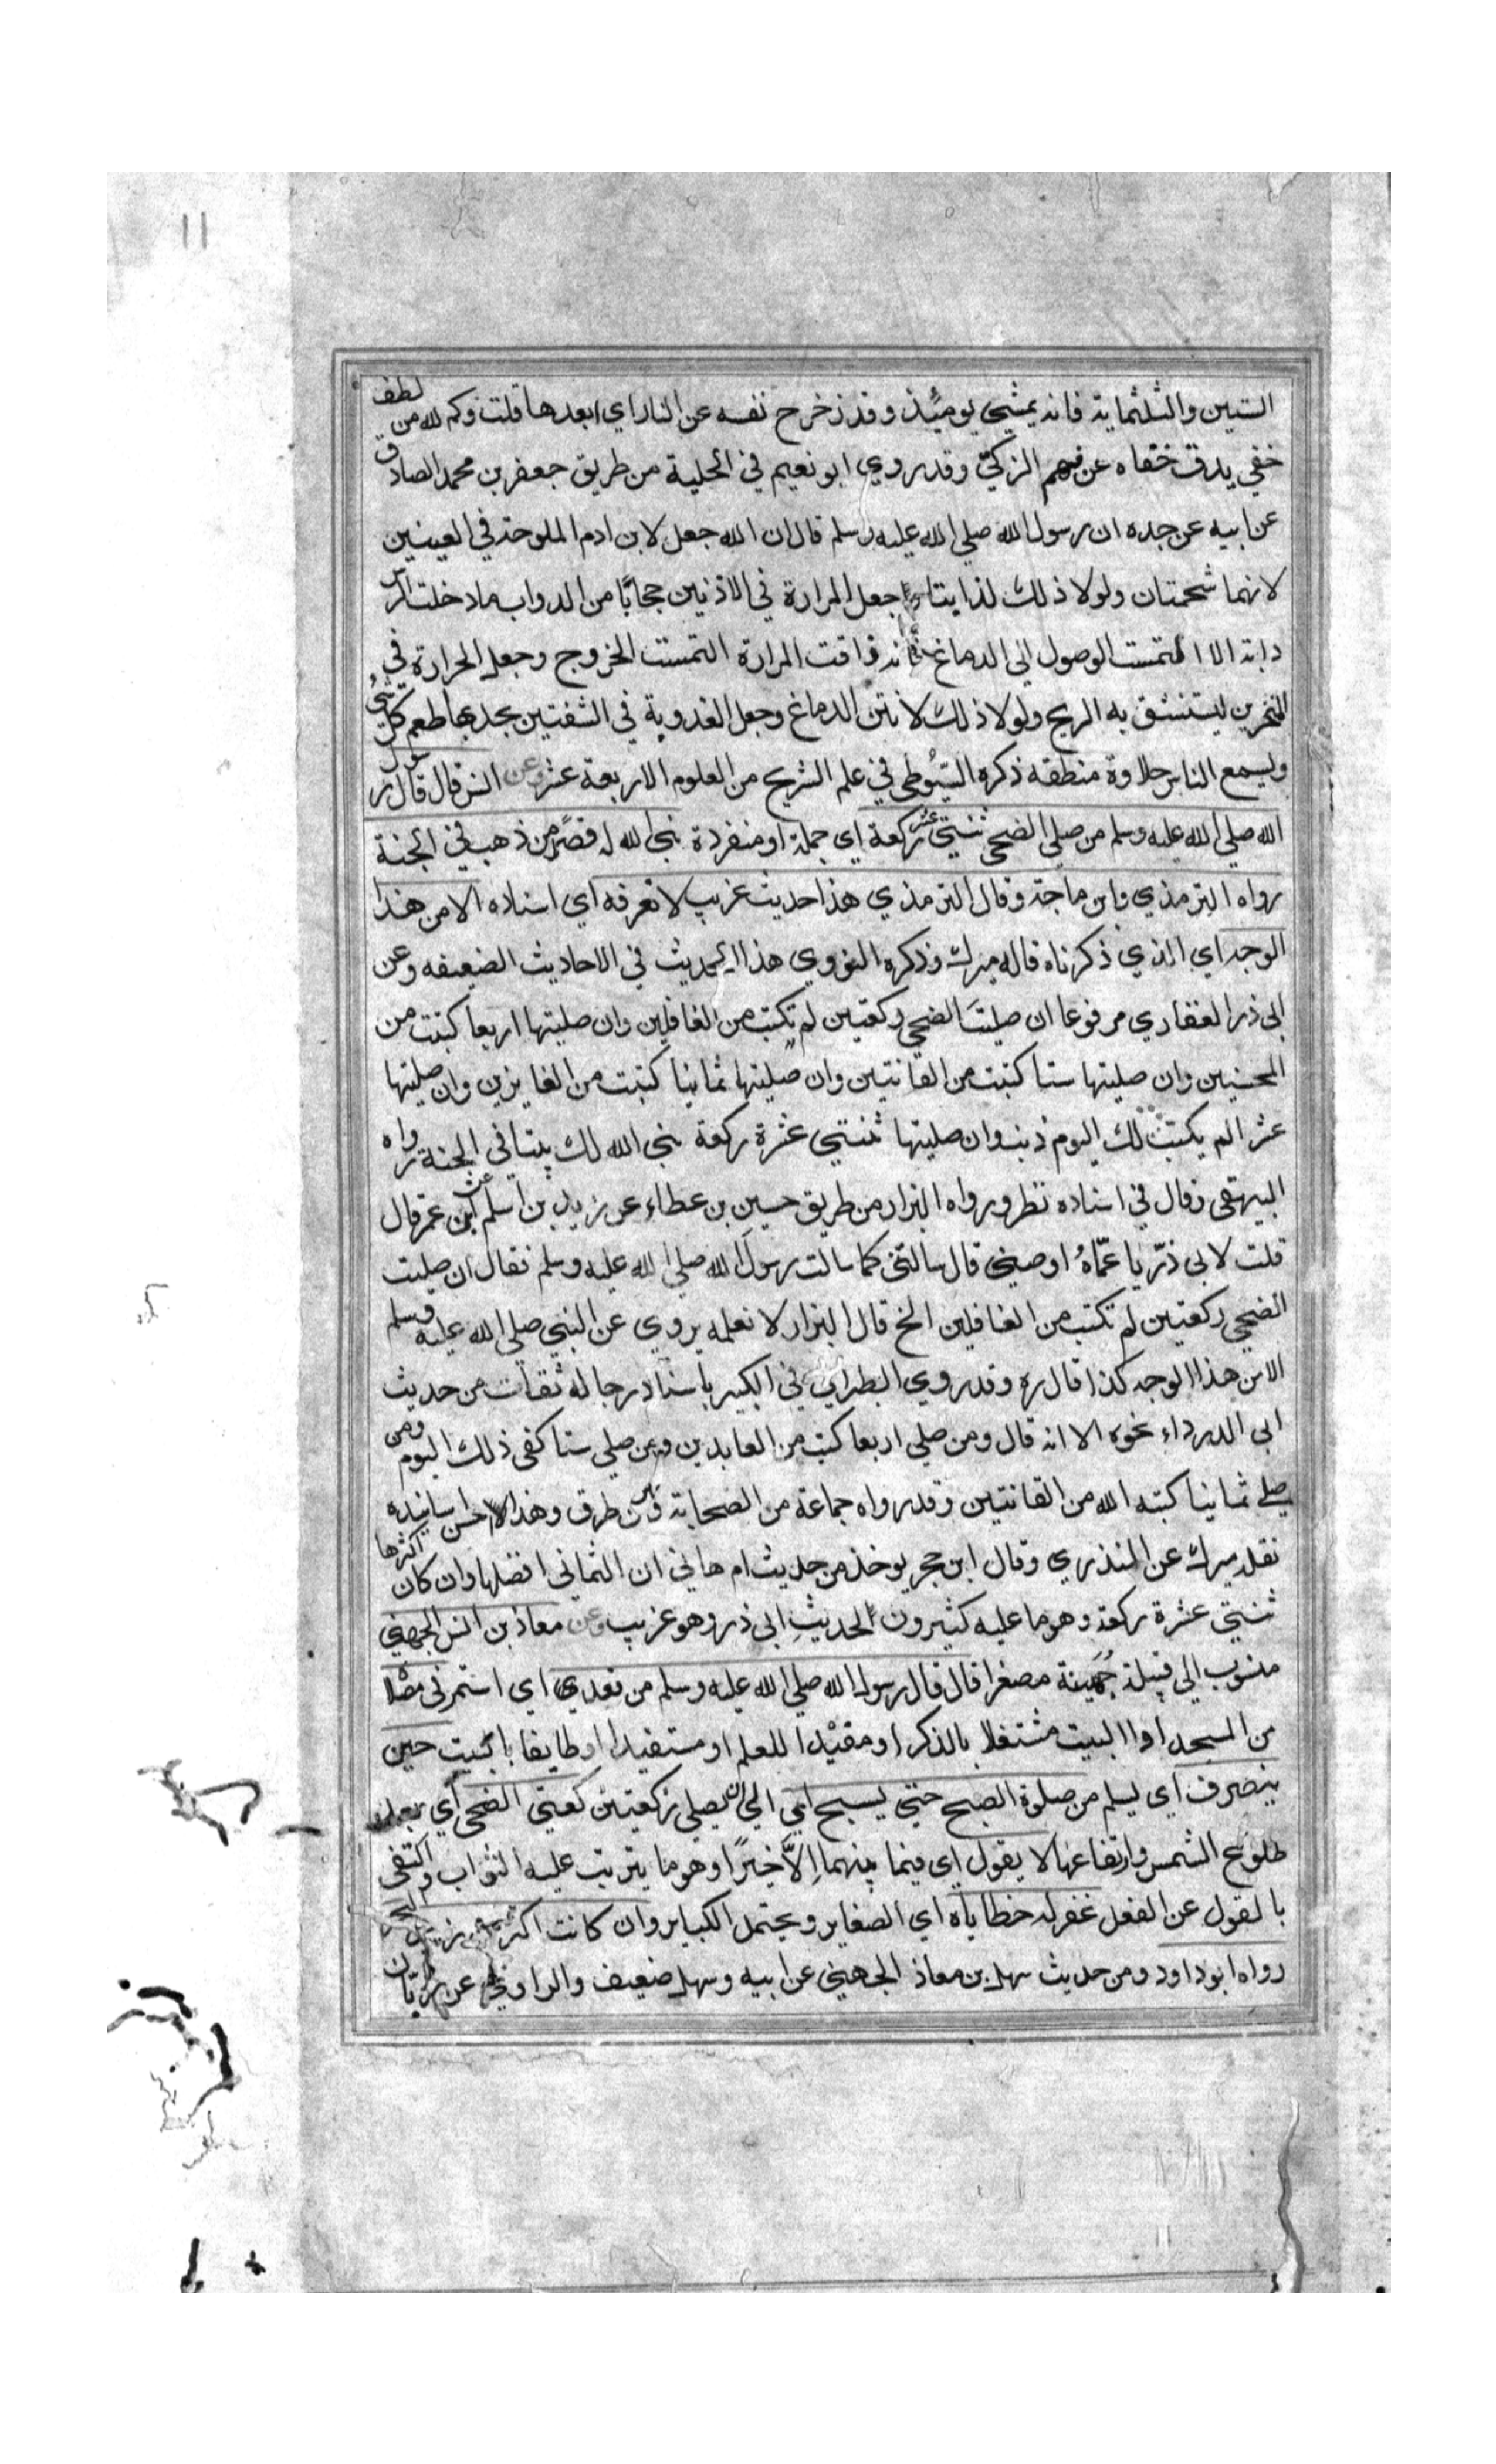 ١١
الستين والثلثماية فانه يمشي يومئذ وقد زحزح نفسه عن النار اي ابعدها قلت وكم لله من لطف
خفي يدق خفاه عن فهم الزكيّ وقد روي ابو نعيم في الحلية من طريق جعفر بن محمد الصادق
عن ابيه عن جده ان رسول الله صلي الله عليه وسلم قال ان الله جعل لابن ادم الملوحة في العينين
لانهما شحمتان ولولا ذلك لذابتا وجعل المرارة في الاذنين حجابًا من الدواب ما دخلت الراس
دابة الا التمست الوصول الي الدماغ فاذا ذاقت المرارة التمست الخروج وجعل الحرارة في
المنخرين ليستنشق به الريح ولولا ذلك لانتن الدماغ وجعل العذوبة في الشفتين يجد بها طعم كل شئ
وليسمع الناس حلاوة منطقه ذكره السّيُوطي في علم التشريح من العلوم الاربعة عشر وعن انس قال قال رسول
الله صلي الله عليه وسلم من صلي الضحي ثنتي عشر ركعة اي جملة او منفردة بني الله له قصرًا من ذهب في الجنة
رواه الترمذي وابن ماجة وقال الترمذي هذا حديث غريب لا نعرفه اي اسناده الا من هذا
الوجه اي الذي ذكرناه قاله ميرك وذكره النووي هذا الحديث في الاحاديث الضعيفه وعن
ابي ذر الغفاري مرفوعا ان صليتَ الضحي ركعتين لم تكتب من الغافلين وان صليتها اربعا كتبت من
المحسنين وان صليتها ستا كتبت من القانتين وان صليتها ثمانيا كتبت من الفايزين وان صليتها
عشرا لم يكتب لك اليوم ذنب وان صليتها ثنتي عشرة ركعة بني الله لك بيتا في الجنة رواه
البيهقي وقال في اسناده نظر ورواه البزار من طريق حسين بن عطاء عن زيد بن اسلم عن ابن عمر قال
قلت لابي ذرّ يا عمّاهُ اوصيني قال سالتني كما سالت رسول الله صلي الله عليه وسلم فقال ان صليت
الضحي ركعتين لم تكتب من الغافلين الخ قال البزار لا نعلمه يروي عن النبي صلي الله عليه وسلم
الا من هذا الوجه كذا قال ره وقد روي الطبراني في الكبير باسناد رجاله ثقات من حديث
ابي الدرداء نحوه الا انه قال ومن صلي اربعا كتب من العابدين ومن صلي ستا كفي ذلك اليوم ومن
صلي ثمانيا كتبه الله من القانتين وقد رواه جماعة من الصحابة ومن طرق وهذا احسن اسانيده
نقله ميرك عن المنذري وقال ابن حجر يوخذ من حديث ام هاني ان الثماني افضلها وان كان اكثرها
ثنتي عشرة ركعة وهو ما عليه كثيرون لحديثِ ابي ذر وهو غريب وعن معاذ بن انس الجهني
منسوب الي قبيلة جُهَينة مصغرا قال قال رسول الله صلي الله عليه وسلم من قعد اي استمر في مصلاه
من المسجد او البيت مشتغلا بالذكر او مفيْدا للعلم او مستفيدا او طايفا بالبيت حين
ينصرف اي يسلم من صلوة الصبح حتي يسبح اي الي ان يصلي ركعتين كعتي الضحي اي بعد
طلوع الشمس وارتفاعها لا يقول اي فيما بينهما اِلاَّ خيرًا وهو ما يترتب عليه الثواب واكتفي
بالقول عن الفعل غفر له خطاياه اي الصغاير ويحتمل الكباير وان كانت اكثر من زبد البحر
رواه ابو داود ومن حديث سهل بن معاذ الجهني عن ابيه وسهل ضعيف والراوي عن زبّان